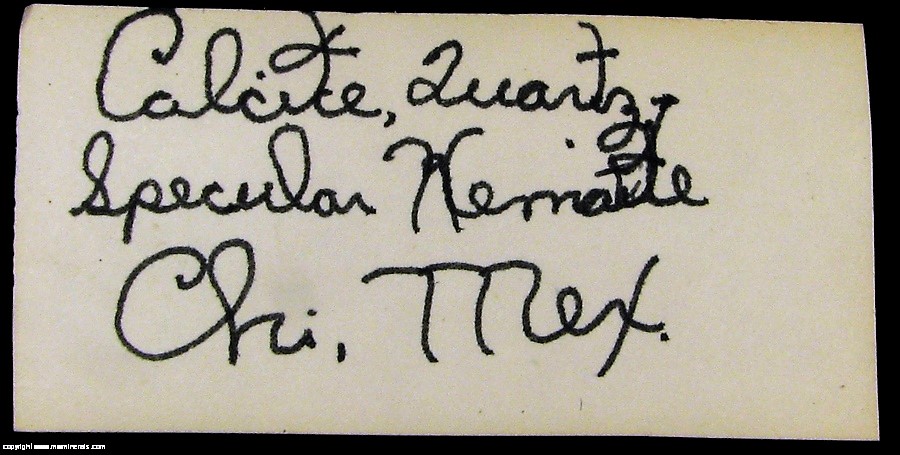 Calcite, Quartz,
Specular Hematite
Chi, Mex.
copyright www.mexminerals.com